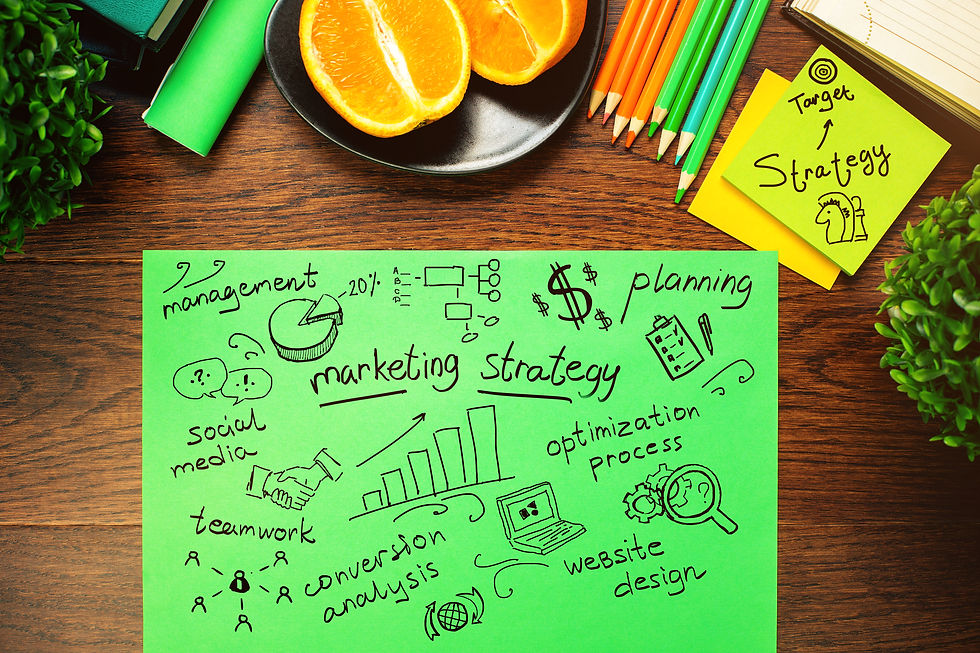 Target
Strategy
management
20%
A
B
C
D
$
$
$
$
planning
marketing strategy
? !
social
media
optimization
process
teamwork
?
conversion
analysis
website
design